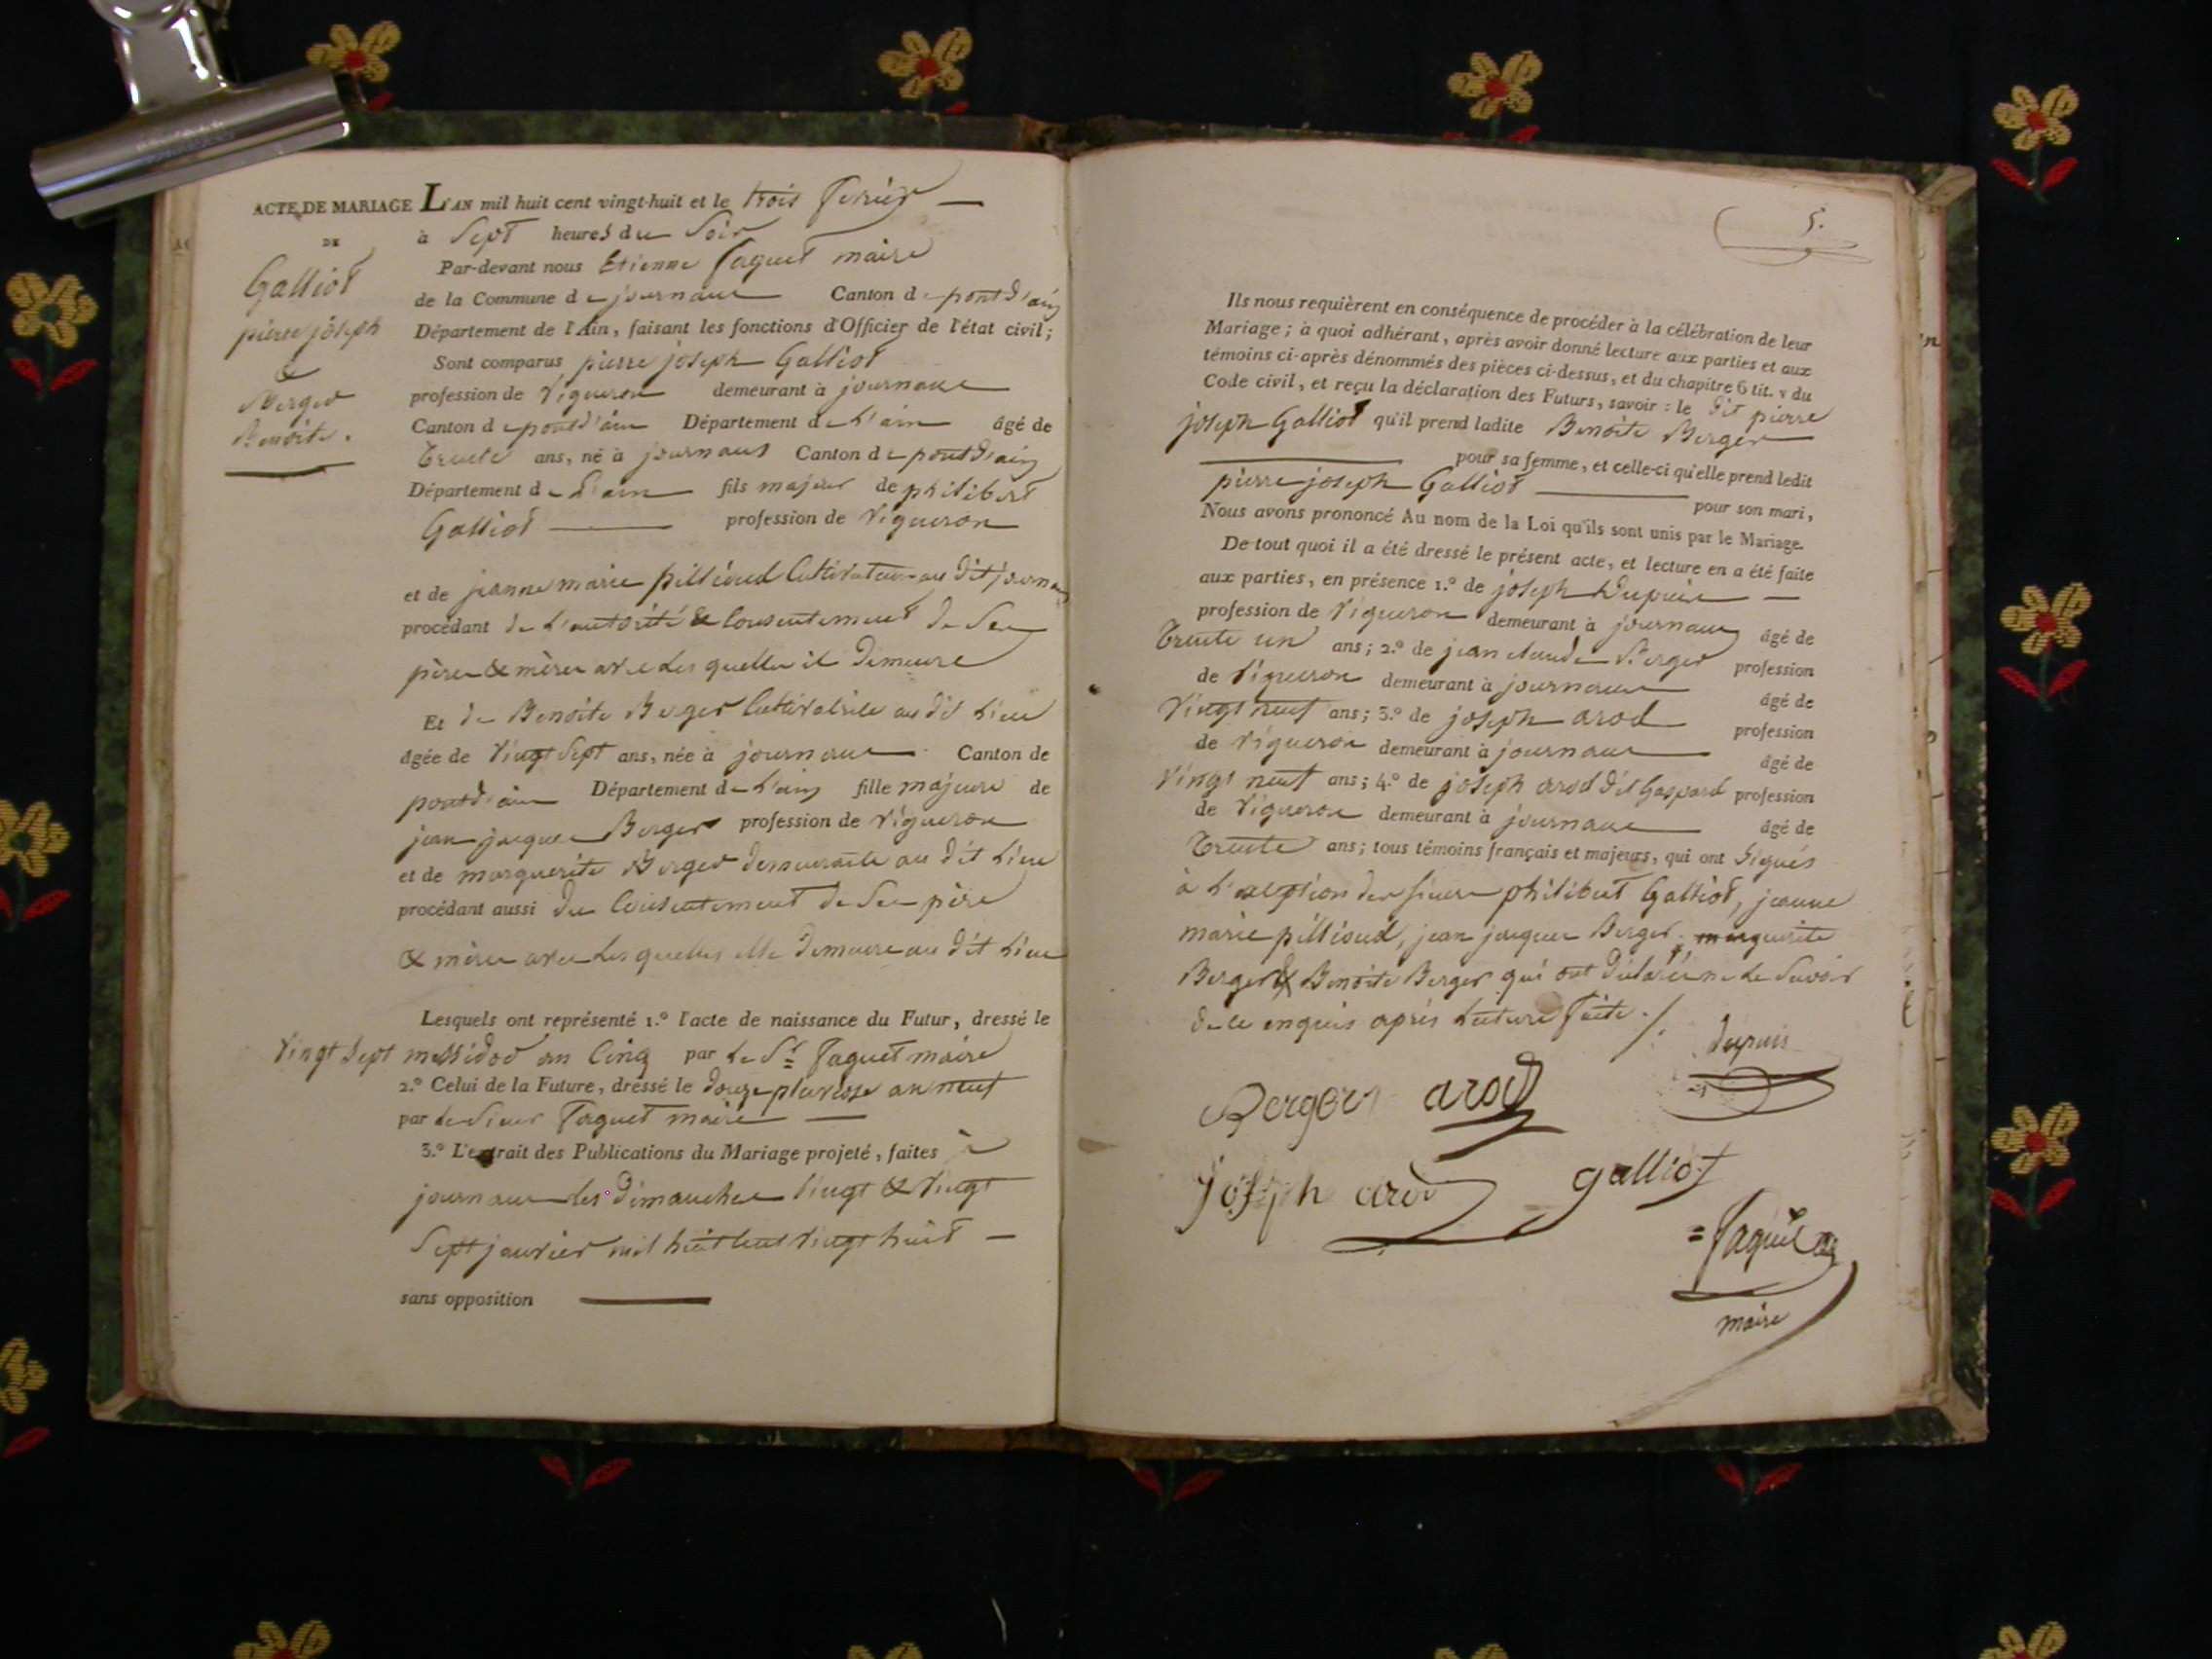 ACTE DE MARIAGE L'AN mil huit cent vingt-huit et le trois fevrier
DE
à Sept heures du Soir
Par-devant nous Etienne faguet maire
de la Commune de journaux Canton de pont d'ain
Département de l'Ain, faisant les fonctions d'Officier de l'état civil;
Galliot
pierre joseph
&
Berger
Benoite.
Sont comparus pierre joseph Galliot
profession de Vigneron demeurant à journaux
Canton de pont d'ain Département de L'ain âgé de
Trente ans, né à journaus Canton de pont d'ain
Département de L'ain fils majeur de philibert
Galliot profession de Vigneron
et de jeanne marie pillioud Cultivateurs au dit journaux
procédant de L'autorité & Consentement de Ses
pères & mères avec Les quelles il Demeure
Et de Benoite Berger Cultivatrice au dit Lieu
âgée de Vingt Sept ans, née à journaux Canton de
pont d'ain Département de L'ain fille majeure de
jean jacques Berger profession de Vigneron
et de marguerite Berger demeurants au dit Lieu
procédant aussi du Consentement de Ses père
& mères avec Les quelles elle Demeure au dit Lieu
Lesquels ont représenté 1.º l'acte de naissance du Futur, dressé le
Vingt Sept messidor an Cinq par Le Sr faguet maire
2.º Celui de la Future, dressé le douze pluviose an neuf
par Le Sieur faguet maire
3.º L'extrait des Publications du Mariage projeté, faites à
journaux Les Dimanches Vingt & Vingt
Sept janvier mil huit Cent Vingt huit
sans opposition
5.
Ils nous requièrent en conséquence de procéder à la célébration de leur
Mariage; à quoi adhérant, après avoir donné lecture aux parties et aux
témoins ci-après dénommés des pièces ci-dessus, et du chapitre 6 tit. v du
Code civil, et reçu la déclaration des Futurs, savoir: le dit pierre
joseph Galliot qu'il prend ladite Benoite Berger
pour sa femme, et celle-ci qu'elle prend ledit
pierre joseph Galliot pour son mari,
Nous avons prononcé Au nom de la Loi qu'ils sont unis par le Mariage.
De tout quoi il a été dressé le présent acte, et lecture en a été faite
aux parties, en présence 1.º de joseph Dupuis
profession de Vigneron demeurant à journaux âgé de
Trente un ans; 2.º de jean claude Berger profession
de Vigneron demeurant à journaux âgé de
Vingt neuf ans; 3.º de joseph arod profession
de Vigneron demeurant à journaux âgé de
Vingt neuf ans; 4.º de joseph arod dit Gaspard profession
de Vigneron demeurant à journaux âgé de
Trente ans; tous témoins français et majeurs, qui ont Signés
à L'exeption des Sieurs philibert Galliot, jeanne
marie pillioud, jean jacques Berger, marguerite
Berger & Benoite Berger qui ont déclaré ne Le Savoir
de ce enquis après Lecture faite ./.
dupuis
Berger arod
joseph arod galliot
faguet
maire